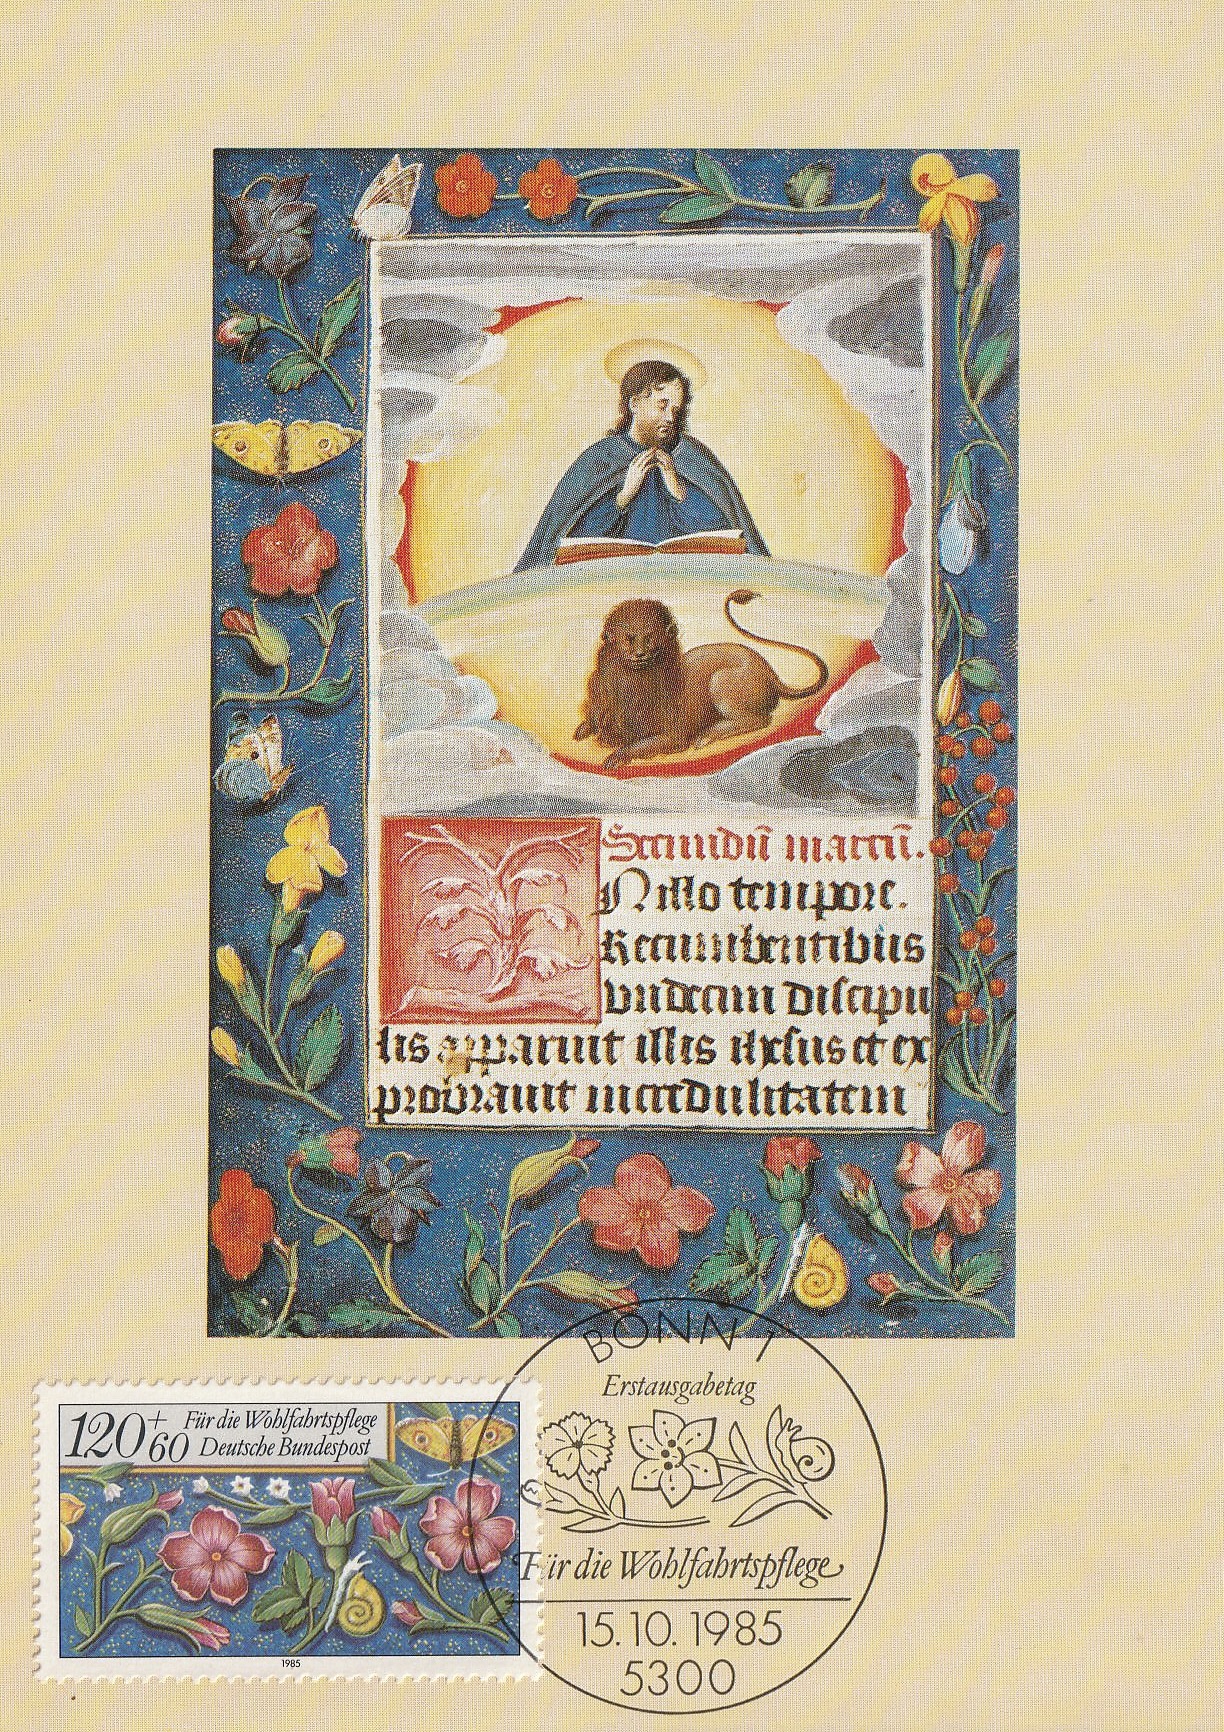 Secundū marcū.
N illo tempore.
Recumbentibus
vndecim discipu
lis apparuit illis ihesus et ex
probrauit incredulitatem
BONN 1
Erstausgabetag
Für die Wohlfahrtspflege
15.10.1985
5300
120+60 Für die Wohlfahrtspflege
Deutsche Bundespost
1985